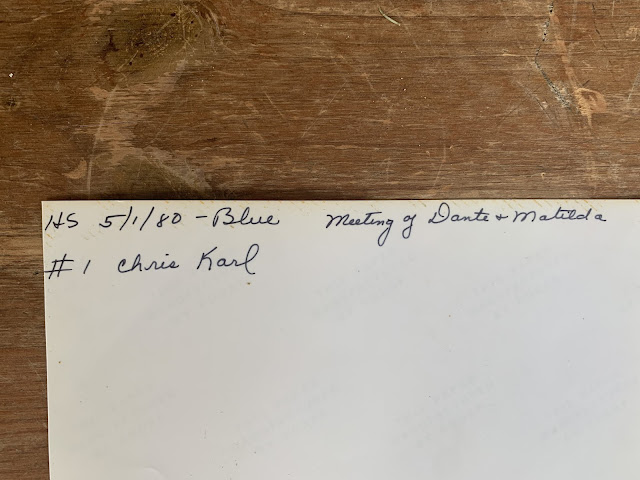 HS 5/1/80 - Blue Meeting of Dante + Matilda
#1 Chris Karl